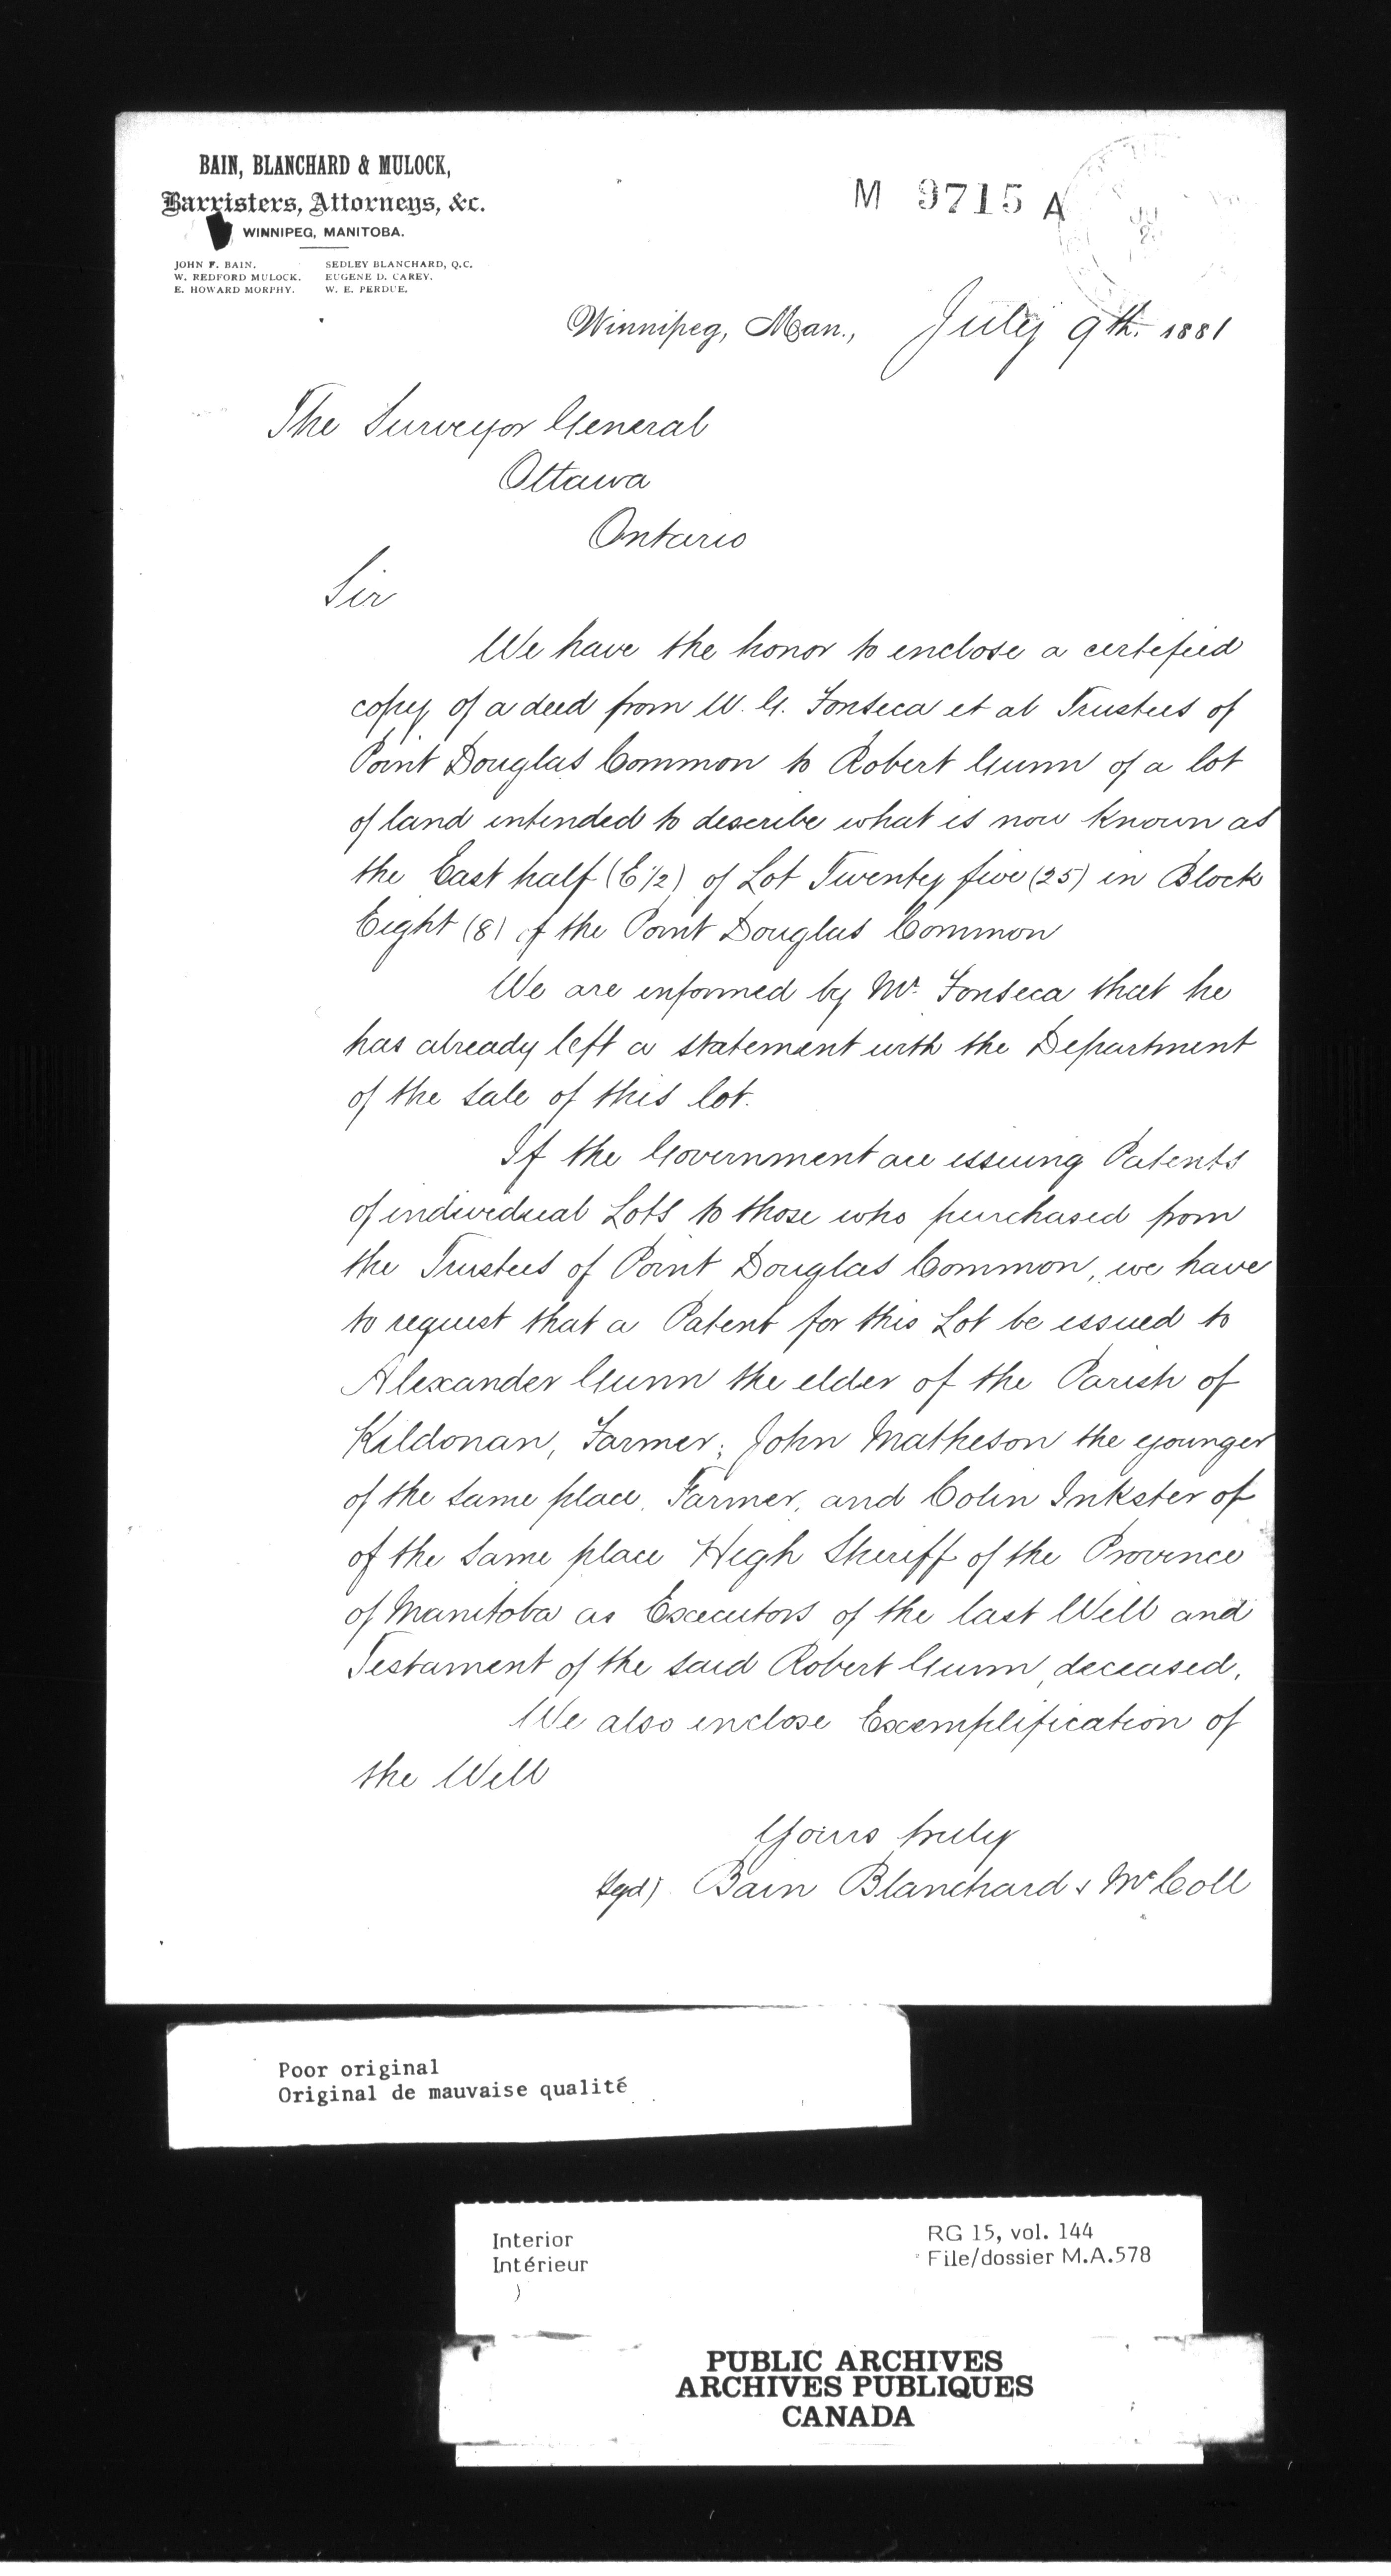 BAIN, BLANCHARD & MULOCK,
Barristers, Attorneys, &c.
WINNIPEG, MANITOBA.
JOHN F. BAIN. SEDLEY BLANCHARD, Q.C.
W. REDFORD MULOCK. EUGENE D. CAREY.
E. HOWARD MORPHY. W. E. PERDUE.
M 9715 A
Winnipeg, Man., July 9th. 1881
The Surveyor General
Ottawa
Ontario
Sir
We have the honor to enclose a certified
copy of a deed from W. G. Fonseca et al Trustees of
Point Douglas Common to Robert Gunn of a lot
of land intended to describe what is now known as
the East half (E 1/2) of Lot Twenty five (25) in Block
Eight (8) of the Point Douglas Common
We are informed by Mr. Fonseca that he
has already left a statement with the Department
of the sale of this lot.
If the Government are issuing Patents
of individual Lots to those who purchased from
the Trustees of Point Douglas Common, we have
to request that a Patent for this Lot be issued to
Alexander Gunn the elder of the Parish of
Kildonan, Farmer; John Matheson the younger
of the same place, Farmer, and Colin Inkster of
of the same place High Sheriff of the Province
of Manitoba as Executors of the last Will and
Testament of the said Robert Gunn, deceased.
We also enclose Exemplification of
the Will
Yours truly
Sgd) Bain Blanchard & McColl
Poor original
Original de mauvaise qualité
Interior RG 15, vol. 144
Intérieur File/dossier M.A.578
PUBLIC ARCHIVES
ARCHIVES PUBLIQUES
CANADA